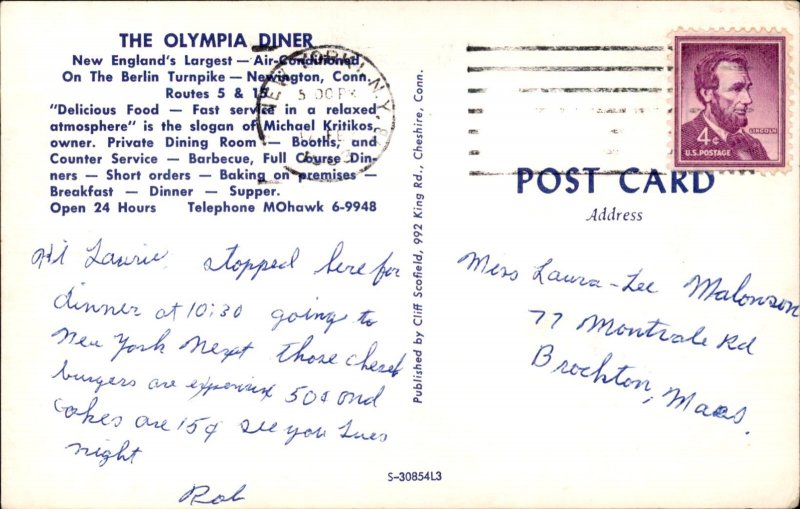 THE OLYMPIA DINER
New England's Largest — Air-Conditioned,
On The Berlin Turnpike — Newington, Conn.
Routes 5 & 15
"Delicious Food — Fast service in a relaxed
atmosphere" is the slogan of Michael Kritikos
owner. Private Dining Room — Booths, and
Counter Service — Barbecue, Full Course Din-
ners — Short orders — Baking on premises —
Breakfast — Dinner — Supper.
Open 24 Hours Telephone MOhawk 6-9948
Hi Laurie, stopped here for
dinner at 10:30 going to
New York Next those cheese
burgers are 50¢ and
cokes are 15¢ see you Tues
night
Rob
Published by Cliff Scofield, 992 King Rd., Cheshire, Conn.
S-30854L3
NEW YORK, N.Y.
5 00 PM
4¢
LINCOLN
U.S. POSTAGE
POST CARD
Address
Miss Laura-Lee Malonson
77 Montvale Rd
Brockton, Mass.